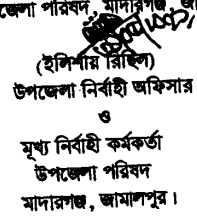 জেলা পরিষদ, মাদারগঞ্জ, জা
(ইলিশায় রিছিল)
উপজেলা নির্বাহী অফিসার
ও
মূখ্য নির্বাহী কর্মকর্তা
উপজেলা পরিষদ
মাদারগঞ্জ, জামালপুর।